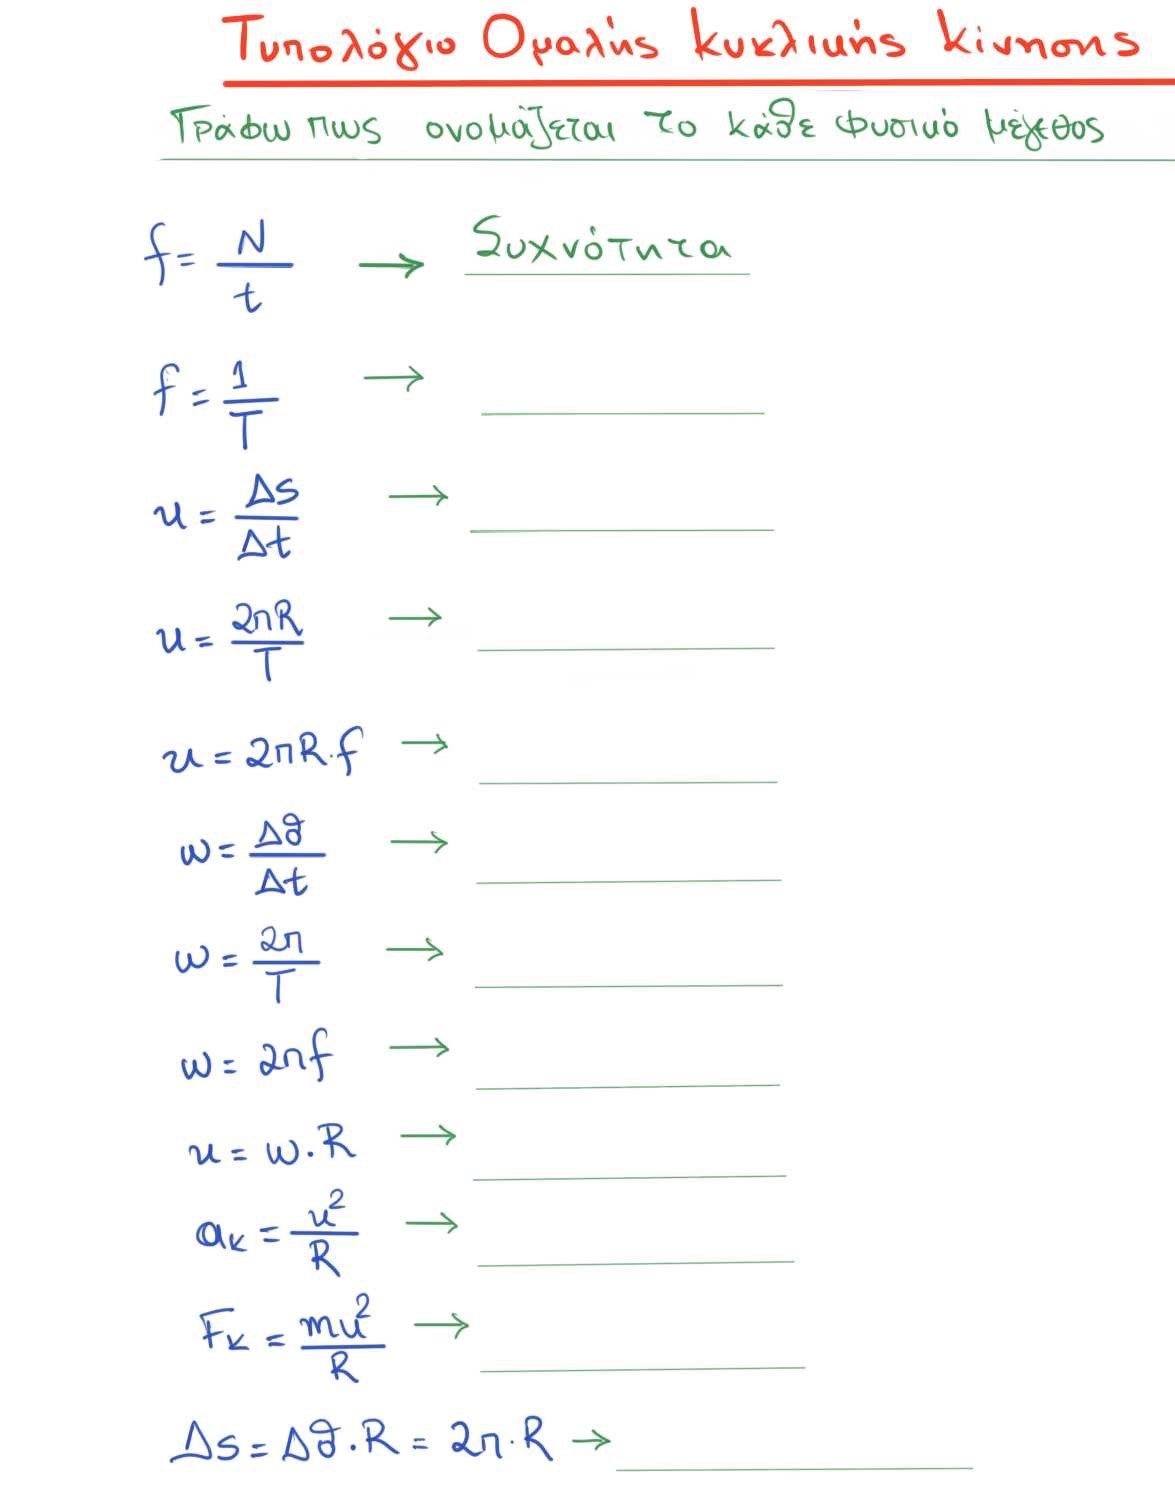 Τυπολόγιο Ομαλής κυκλικής κίνησης
Γράφω πως ονομάζεται το κάθε φυσικό μέγεθος
f = N/t → Συχνότητα
f = 1/T →
u = Δs/Δt →
u = 2πR/T →
u = 2πR·f →
ω = Δθ/Δt →
ω = 2π/T →
ω = 2πf →
u = ω·R →
ακ = u²/R →
Fκ = mu²/R →
Δs = Δθ·R = 2π·R →